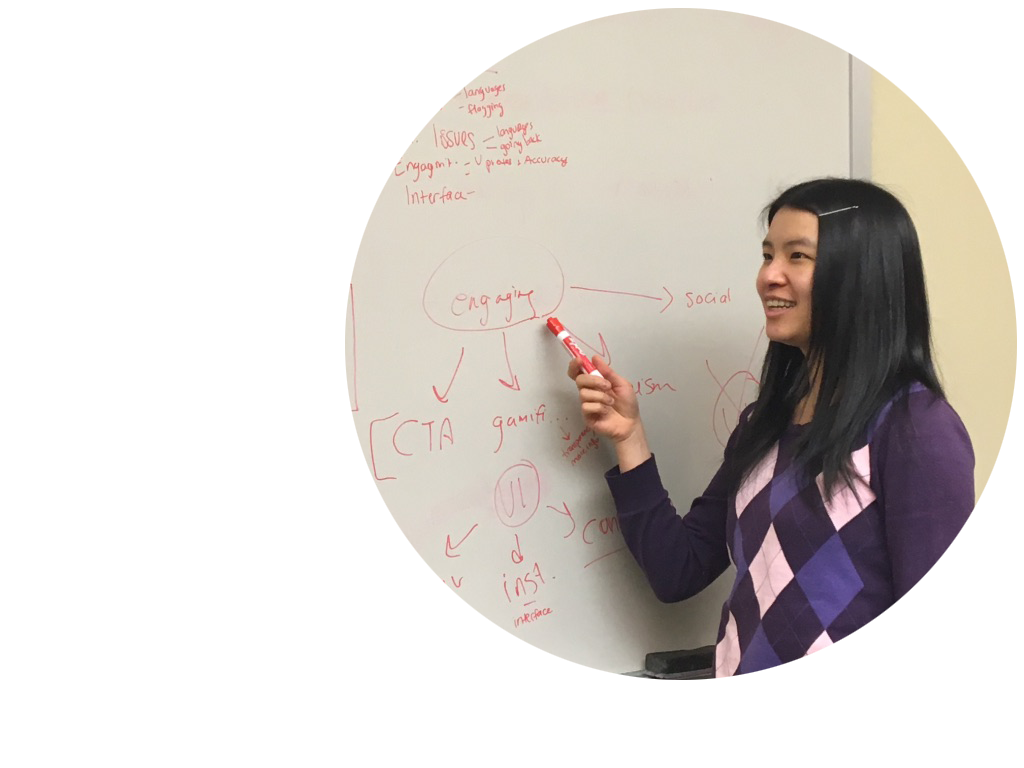 - languages
- flagging
Issues - languages
- going back
Engagmt. - Updates + Accuracy
Interface -
engaging → social
CTA
gamifi...
UI
inst.
interface